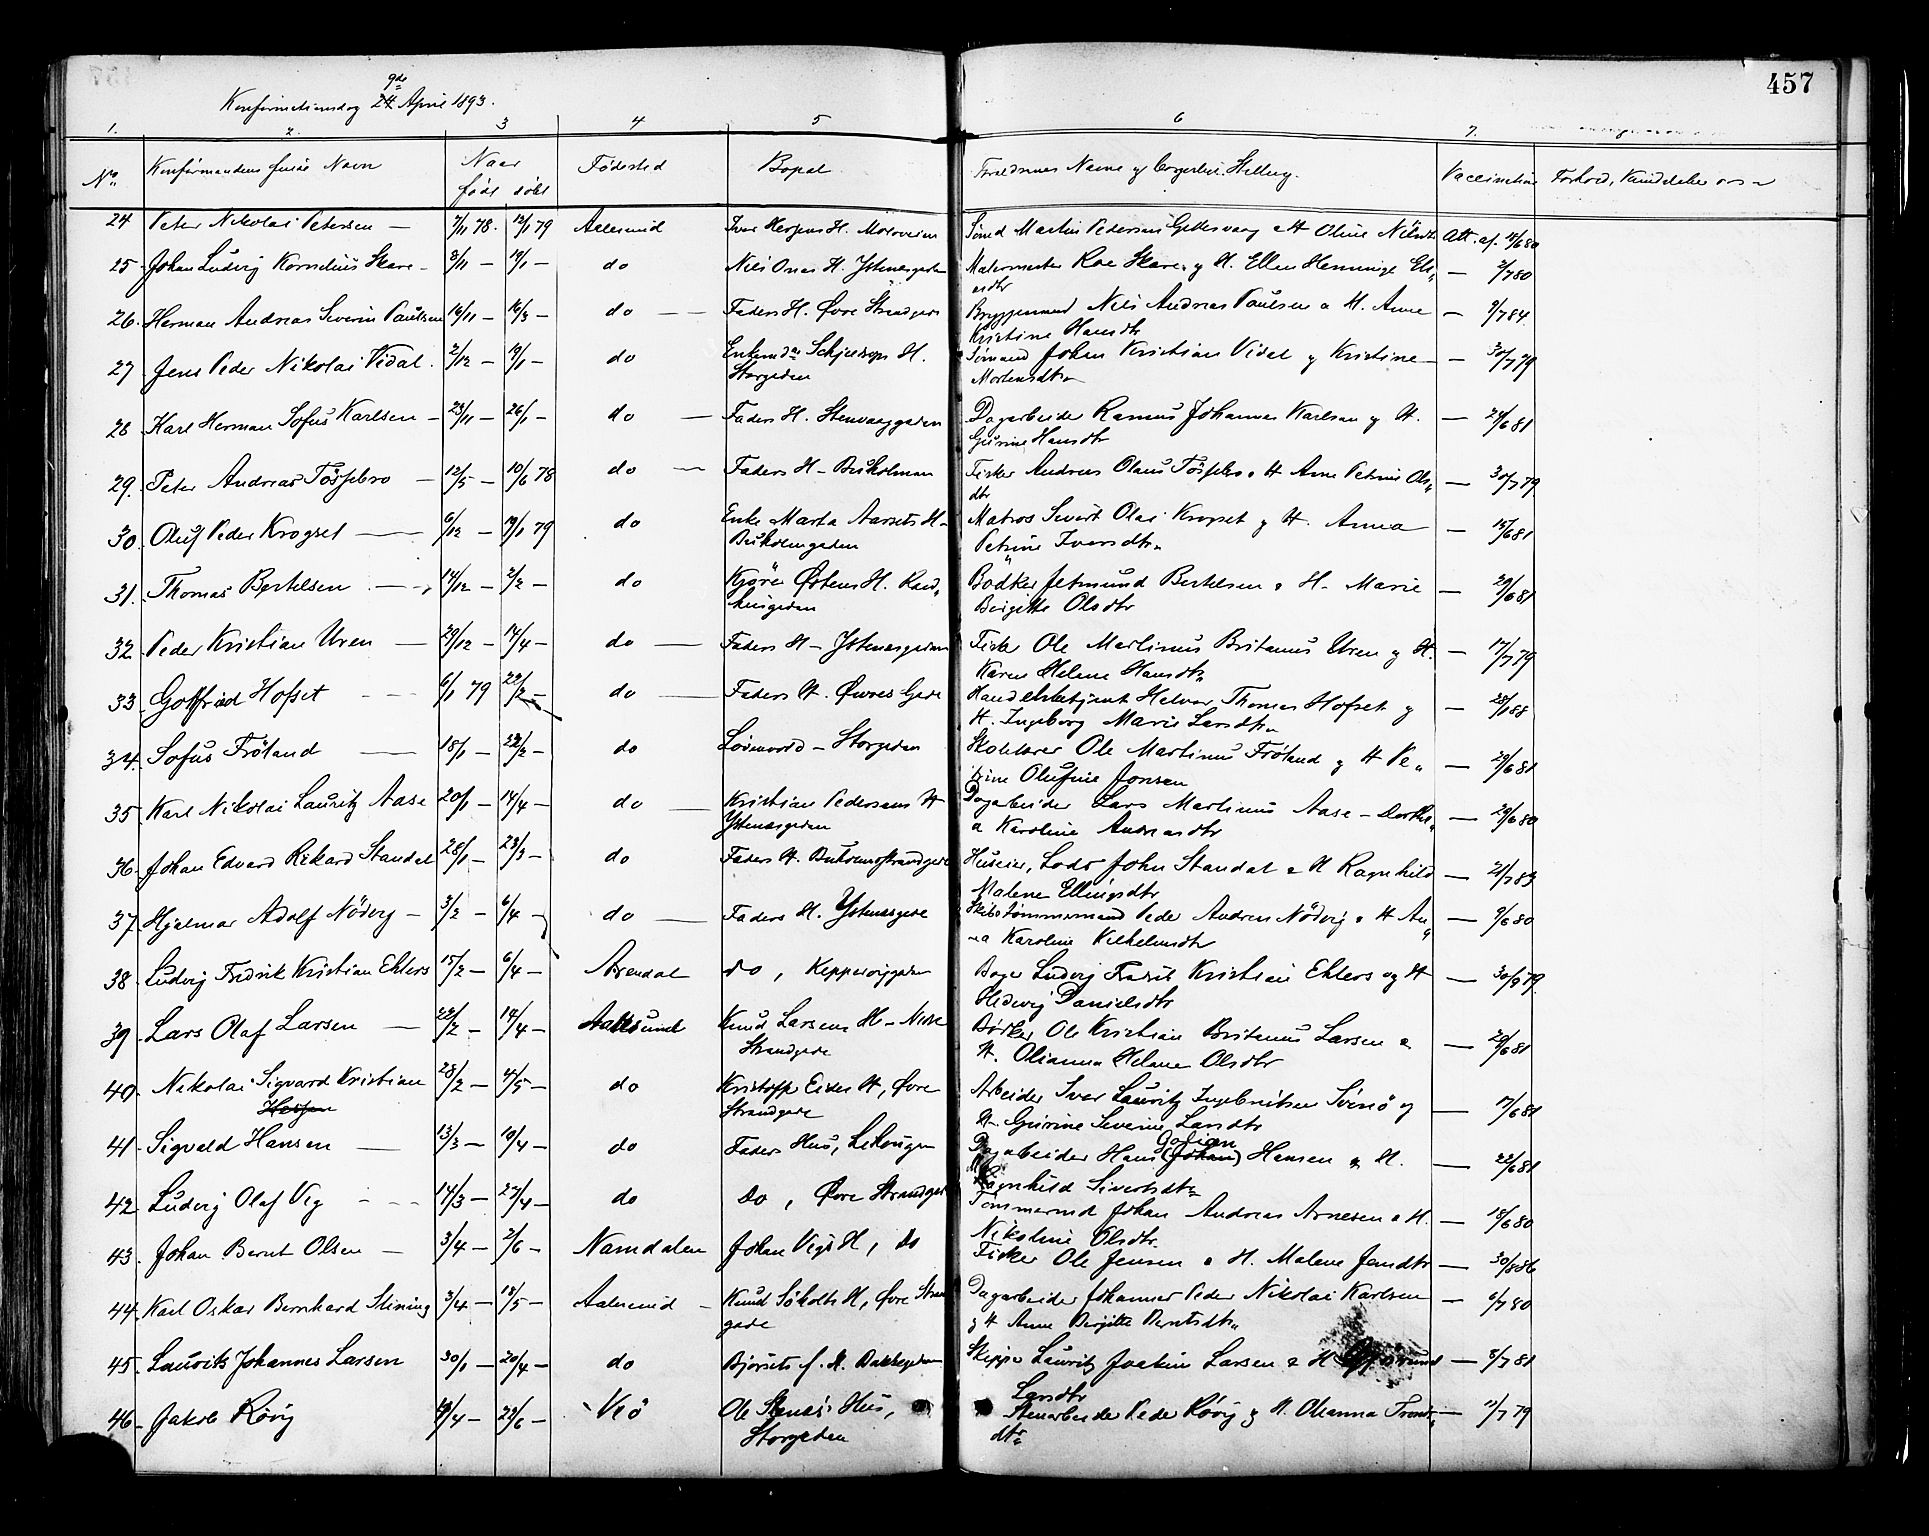 457
9de
Konfirmationsdag 24 April 1893.
1. 2. 3 4 5 6 7.
No. Konfirmandens fulde Navn Naar født døbt Fødested Bopæl Forældrenes Navne og borgerlige Stilling. Vaccination Forhold, Kundskaber
24 Peter Nikolai Petersen — 7/11 78. 12/1 79 Aalesund H. Sømd Martin Pedersen a H Oline Att. af. 12/6 80
25. Johan Ludvig Kornelius Skare – 8/11 — 19/1 — do Nils Onas H. Ystenæsgaden Malermester Roe Skare og H. Ellen Henninge — 2/7 80
26. Herman Andreas Severin Paulsen 16/11 — 16/3 — do — Faders H. Øvre Strandgade Bryggemand Nils Andreas Paulsen a H. Anne — 9/7 84.
Kristine Hansdtr
27 Jens Peder Nikolai Vidal. 2/12 — 19/1 — do H. Sømand Johan Kristian Vidal og Kristine — 30/7 79
Storgaden Mortensdtr
28 Karl Herman Sofus Karlsen — 23/11 — 26/1 — do — Faders H. Stenvaaggaden Dagarbeider Rasmus Johannes Karlsen og H. — 24/6 81
Gurine Hansdtr
29. Peter Andreas Tøssebro — 12/5 — 10/6 78 do — Faders H – Buholmen Fisker Andreas Olaus Tøssebro a H Anne Petrine Ols — 30/7 79
dtr
30. Oluf Peder Krogset — 6/12 — 19/1 79 do Enke Marta Aarsets H – Matros Sivert Olai Krogset og H. Anna — 15/6 81
Buholmgaden Petrine Iversdtr
31. Thomas Bertelsen — 14/12 — 2/2 — do Østens H. Bødker Jetmund Bertelsen a H – Marie — 29/6 81
Birgitte Olsdtr
32 Peder Kristian Uren — 29/12 — 14/4 — do — Faders H – Ystenæsgaden Fisker Ole Martinus Britanus Uren og H. — 17/7 79
Karen Helene Hansdtr
33 Gotfred Hofset — 6/1 79 22/2 — do — Faders H. Øwres Gade Handelsbetjent Thomas Hofset og — 28/1 88
H. Ingeborg Marie Larsdtr
34. Sofus Frøland — 18/1 — 22/2 — do Løvenvold – Storgaden Skolelærer Ole Martinus Frøland og H Pe — 29/6 81
trine Olufine Jonsen
35 Karl Nikolai Lauritz Aase 20/1 — 14/4 — do — Kristian Pedersens H Dagarbeider Lars Martinus Aase – — 29/6 80
Ystenæsgaden a Karoline Andreasdtr
36 Johan Edvard Rikard Standal 28/1 — 23/3 — do Faders H. Buholmstrandgade Huseier, Lods John Standal a H Ragnhild — 21/7 83
Malene Ellingsdtr
37 Hjalmar Adolf Nödvig – 3/2 — 6/4 — do — Faders H. Ystenæsgade Skibstømmermand Peder Andreas Nödvig a H An — 9/6 80
na Karoline Vilhelmsdtr
38 Ludvig Fredrik Kristian Ehlers 15/2 — 6/4 — Arendal do, Keppervigsgaden Bager Ludvig Fredrik Kristian Ehlers og H — 30/9 79.
Hedevig Danielsdtr
39 Lars Olaf Larsen — 22/2 — 14/4 — Aalesund Knud Larsens H – Nedre Bødker Ole Kristian Britanus Larsen a — 29/6 81
Strandgade H. Olianna Helene Olsdtr
40 Nikolai Sigvard Kristian 28/2 — 4/5 — do Kristoffer Eides H, Øvre Arbeider Ivar Lauritz Ingebrigtsen og — 17/6 81
Strandgade H – Gurine Severine Larsdtr
41 Sigvald Hansen — 13/3 — 19/4 — do Faders Hus, Dagarbeider Hans (Johan) Hansen a H. — 22/6 81
Ragnhild Sivertsdtr
42 Ludvig Olaf Vig — 14/3 — 27/4 — do do, Øvre Strandgade Tømmermd Johan Andreas Arnesen a H. — 18/6 80
Nikoline Olsdtr.
43. Johan Bernt Olsen — 3/4 — 2/6 — Namdalen Johan Vigs H, do Fisker Ole Jensen a H. Malene Jensdtr — 30/8 86
44 Karl Oskar Bernhard Stining 3/4 — 18/5 — Aalesund — Knud Søholts H, Øvre Stran Dagarbeider Johannes Peder Nikolai Karlsen — 6/7 80
gade og H Anne Birgitte Berntsdtr
45. Laurits Johannes Larsen 30/1 — 20/4 — do Bjørsets f. H. Bakkegaden Skipper Lauritz Joakim Larsen a H — 8/7 81
Larsdtr
46 – Jakob Rövig 19/4 — 29/6 — Veø Ole Stenes Hus, Stenarbeider Peder Rövig og H. Olianna — 11/7 79
Storgaden dtr